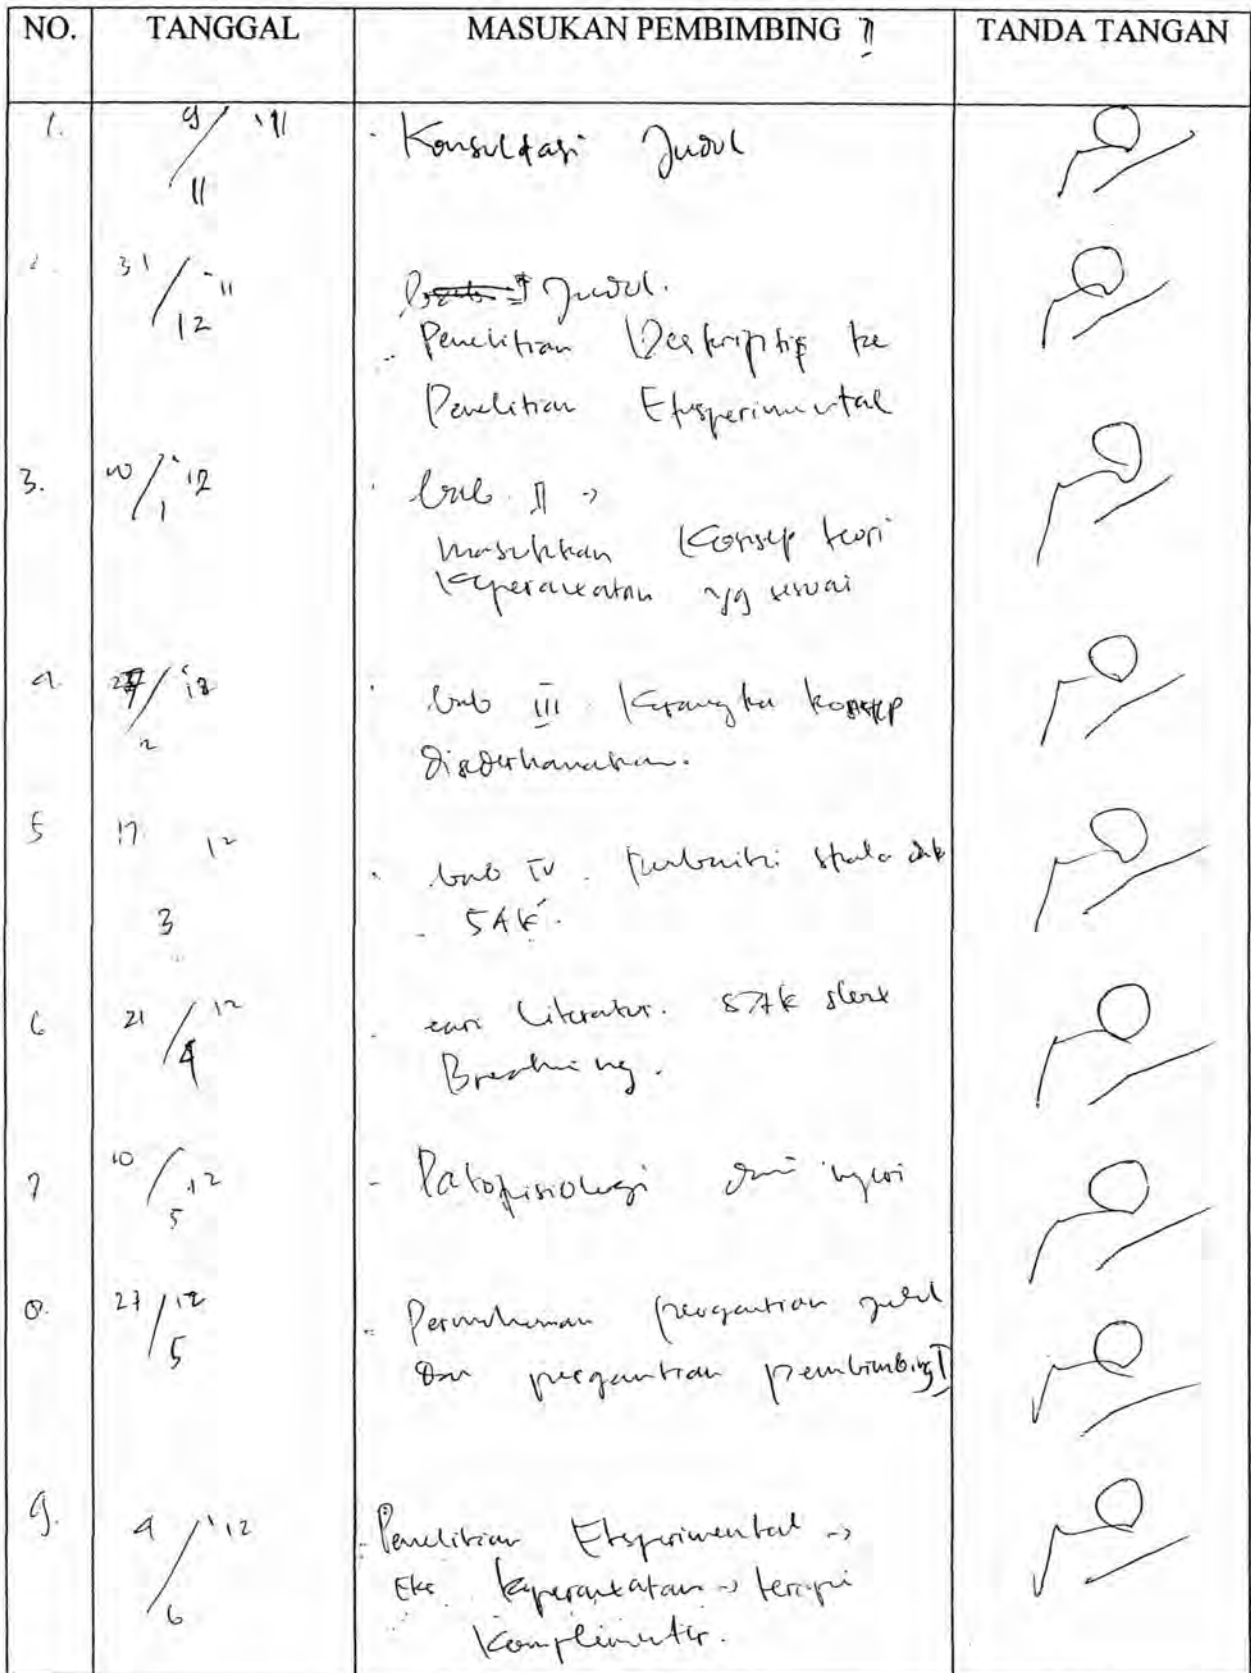 NO. TANGGAL MASUKAN PEMBIMBING II TANDA TANGAN
1. 9/11 '11 - Konsultasi Judul
2. 31/12 '11 Judul.
- Penelitian Deskriptif ke
Penelitian Eksperimental
3. 10/1 '12 - bab II →
masukkan Konsep teori
Keperawatan yg sesuai
4 27/2 '12 - bab III Kerangka konsep
disederhanakan.
5 17 3 12 - bab IV. Perbaiki skala
- SAK.
6 21/4 12 - cari Literatur. SAK slow
Breathing.
7 10/5 12 - Patofisiologi dari nyeri
8. 27/5 12 - Permohonan pergantian judul
dan pergantian pembimbing I
9. 4/6 '12 - Penelitian Eksperimental →
Eks keperawatan → terapi
Komplimenter.